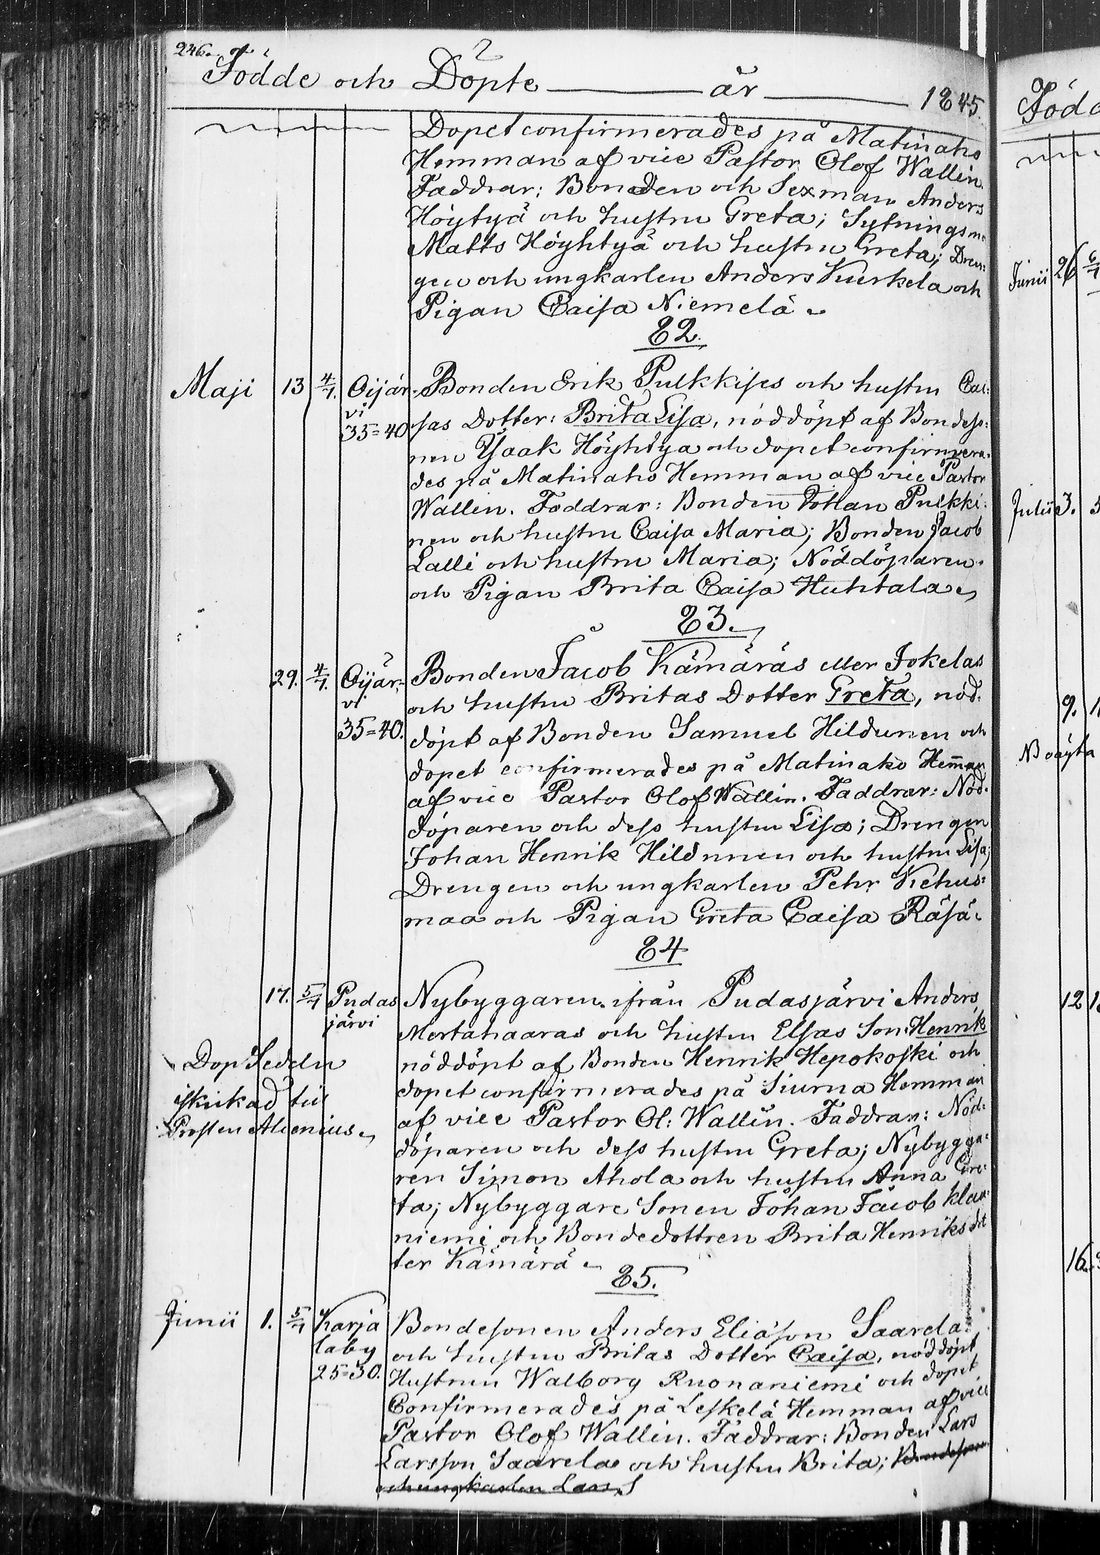 246.
Födde och Döpte år 1845.
Dopet confirmerades på Matinaho
Hemman af vice Pastor Olof Wallin.
Faddrar: Bonden och Sexman Anders
Höytyä och hustru Greta; Sytningsm
Matts Höyhtyä och hustru Greta; Dren-
gen och ungkarlen Anders Kuerkela och
Pigan Caisa Niemelä
82.
Maji 13 4/7. Oijär- Bonden Erik Pulkkises och hustru Cai-
vi sas Dotter: Brita Lisa, nöddöpt af Bondeso-
35=40 nen Ysaak Höyhtya och dopet confirmera-
des på Matinaho Hemman af vice Pastor
Wallin. Faddrar: Bonden Johan Pulkki-
nen och hustru Caisa Maria; Bonden Jacob
Lalli och hustru Maria; Nöddöparen
och Pigan Brita Caisa Huhtala
83.
29. 4/7. Oijär- Bonden Jacob Kämäräs eller Jokelas
vi och hustru Britas Dotter Greta, nöd-
35=40. döpt af Bonden Samuel Hildunen och
dopet confirmerades på Matinaho Hemman
af vice Pastor Olof Wallin. Faddrar: Nöd-
döparen och dess hustru Lisa; Drengen
Johan Henrik Hildunen och hustru Lisa;
Drengen och ungkarlen Pehr Kehus-
maa och Pigan Greta Caisa Räsä
84
17. 5/7 Pudas Nybyggaren ifrån Pudasjärvi Anders
järvi Mertahaaras och hustru Elsas Son Henrik
nöddöpt af Bonden Henrik Hepokoski och
Dop Sedeln dopet confirmerades på Siurua Hemman
iskickad till af vice Pastor Ol: Wallin. Faddrar: Nöd-
Prosten döparen och dess hustru Greta; Nybygga-
ren Simon Ahola och hustru Anna Gre-
ta; Nybyggare Sonen Johan Jacob Klaa-
niemi och Bondedottren Brita Henriks dot
ter Kämärä
85.
Junii 1. 5/7 Karja Bondesonen Anders Eliasson Saarela
laby och hustru Britas Dotter Caisa, nöddöpt
25=30. Hustrun Walborg Ruonaniemi och dopet
Confirmerades på Leskelä Hemman af vice
Pastor Olof Wallin. Faddrar: Bonden Lars
Larsson Saarela och hustru Brita; Bondeson
och ungkarlen Lars
Född
Junii 26
Julii 3.
9.
12
16.